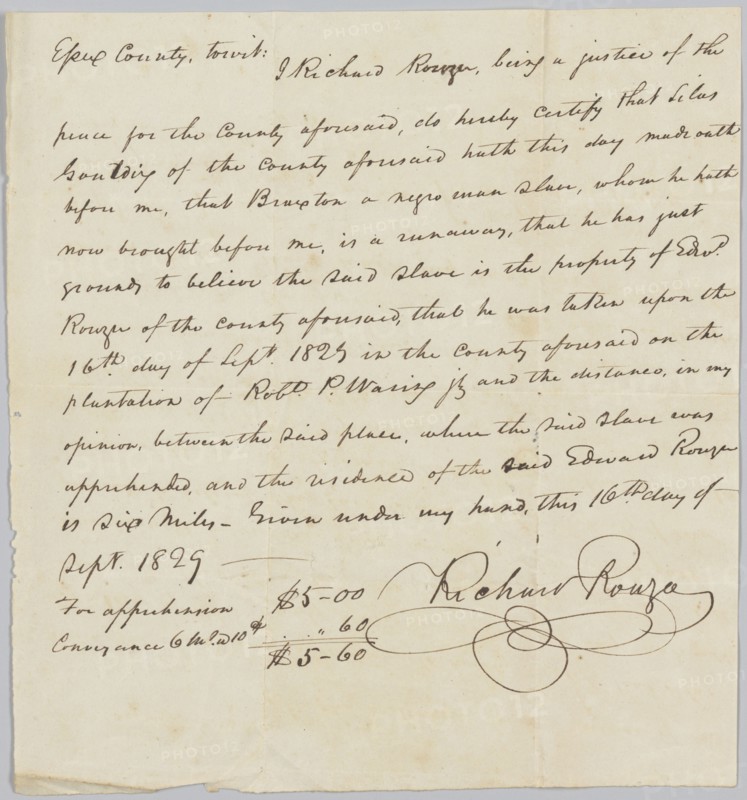 Essex County, towit:
I Richard Rouzee, being a justice of the
peace for the County aforesaid, do hereby certify that Silas
Gouldig of the County aforesaid hath this day made oath
before me, that Braxton a negro man slave, whom he hath
now brought before me, is a runaway, that he has just
grounds to believe the said slave is the property of Edwd.
Rouzee of the county aforesaid, that he was taken upon the
16th day of Sept. 1829 in the county aforesaid on the
plantation of Robt. P. Waring jr and the distance, in my
opinion, between the said place, where the said slave was
apprehended, and the residence of the said Edward Rouzee
is six Miles - Given under my hand, this 16th day of
Sept. 1829
For apprehension $5-00
Conveyance 6 Ms. a 10 " 60
$5-60
Richard Rouzee
PHOTO12